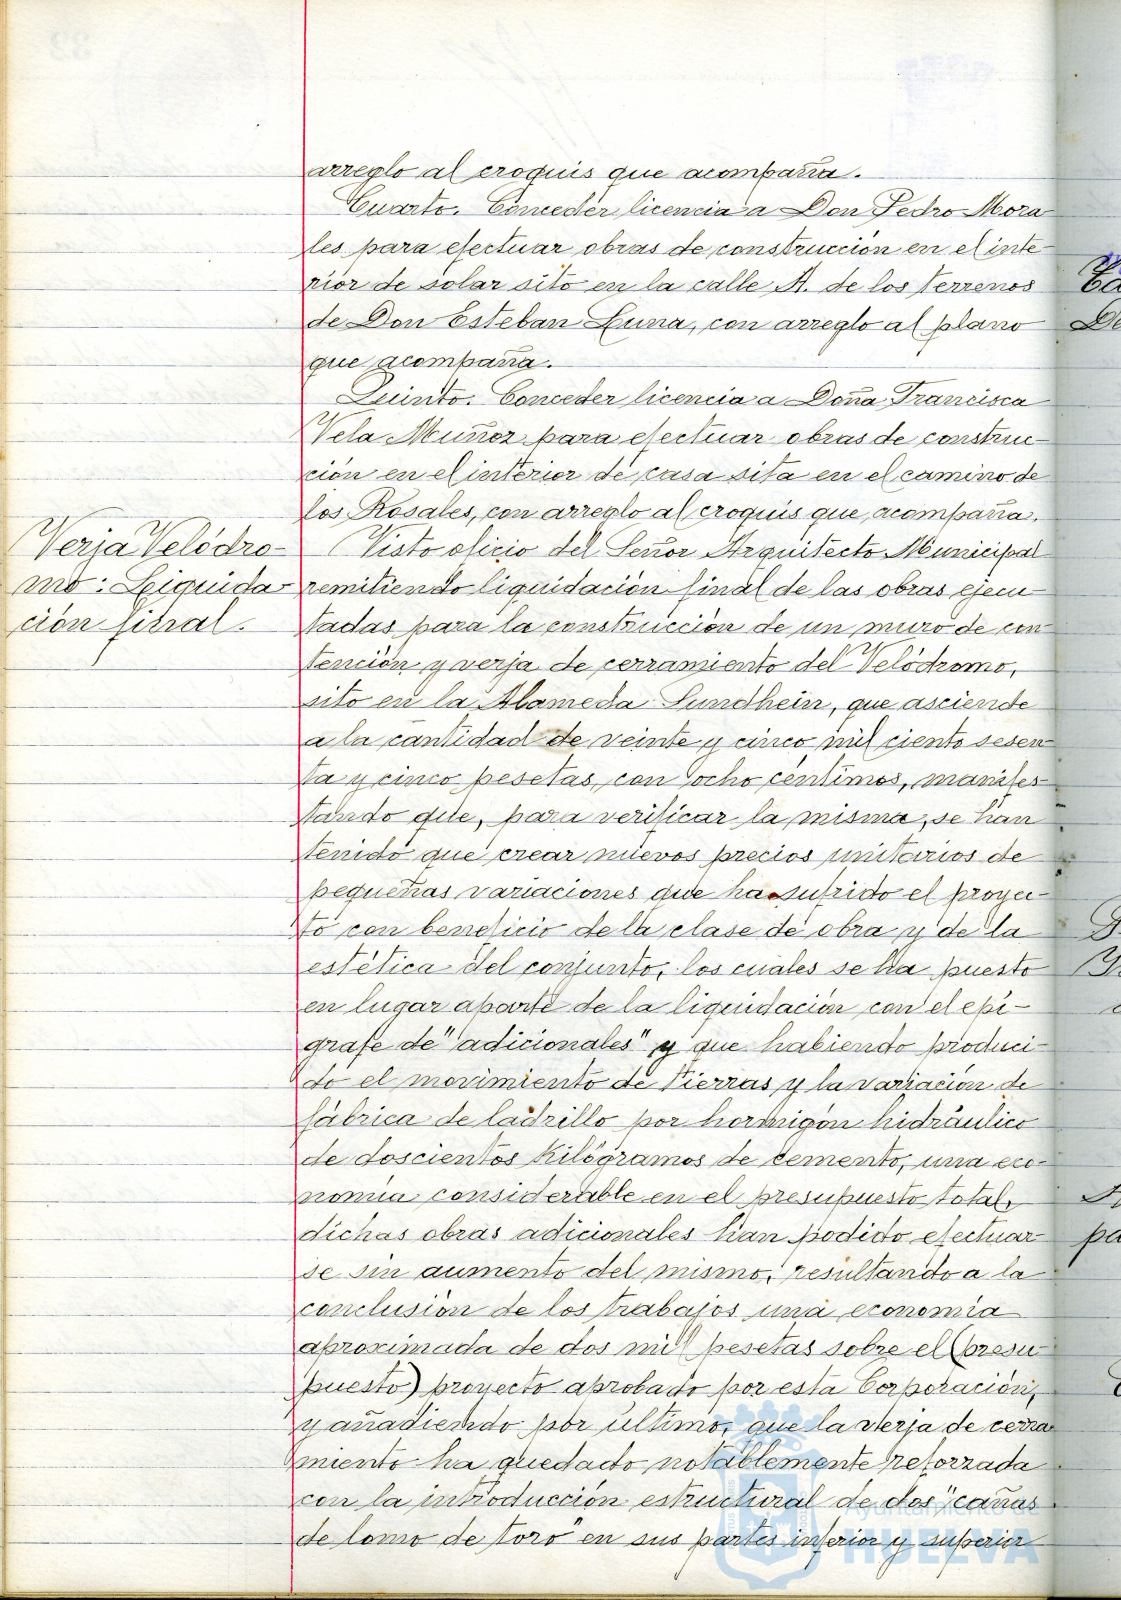 arreglo al croquis que acompaña.
Cuarto. Conceder licencia a Don Pedro Mora
les para efectuar obras de construcción en el inte-
rior de solar sito en la calle A. de los terrenos
de Don Esteban Luna, con arreglo al plano
que acompaña.
Quinto. Conceder licencia a Doña Francisca
Vela Muñoz para efectuar obras de construc-
ción en el interior de casa sita en el camino de
los Rosales, con arreglo al croquis que acompaña.
Verja Velódro-
mo: Liquida-
ción final.
Visto oficio del Señor Arquitecto Municipal
remitiendo liquidación final de las obras ejecu-
tadas para la construcción de un muro de con-
tención y verja de cerramiento del Velódromo,
sito en la Alameda Sundhein, que asciende
a la cantidad de veinte y cinco mil ciento sesen-
ta y cinco pesetas, con ocho céntimos, manifes-
tando que, para verificar la misma, se han
tenido que crear nuevos precios unitarios de
pequeñas variaciones que ha sufrido el proyec-
to con beneficio de la clase de obra y de la
estética del conjunto, los cuales se ha puesto
en lugar aparte de la liquidación con el epí-
grafe de "adicionales" y que habiendo produci-
do el movimiento de tierras y la variación de
fábrica de ladrillo por hormigón hidráulico
de doscientos kilógramos de cemento, una eco-
nomía considerable en el presupuesto total,
dichas obras adicionales han podido efectuar-
se sin aumento del mismo, resultando a la
conclusión de los trabajos una economía
aproximada de dos mil pesetas sobre el (presu-
puesto) proyecto aprobado por esta Corporación,
y añadiendo por último, que la verja de cerra-
miento ha quedado notáblemente reforzada
con la introducción estructural de dos "cañas
de lomo de toro" en sus partes inferior y superior
Ayuntamiento de
HUELVA